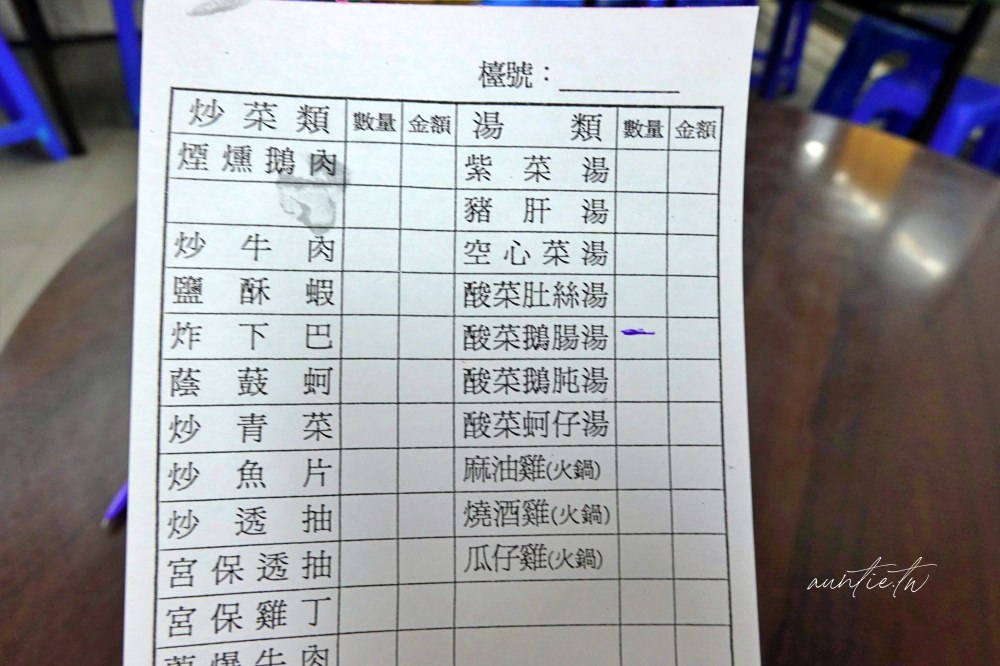 檯號：
炒菜類 數量 金額 湯類 數量 金額
煙燻鵝肉 紫菜湯
豬肝湯
炒牛肉 空心菜湯
鹽酥蝦 酸菜肚絲湯
炸下巴 酸菜鵝腸湯
蔭鼓蚵 酸菜鵝肫湯
炒青菜 酸菜蚵仔湯
炒魚片 麻油雞(火鍋)
炒透抽 燒酒雞(火鍋)
宮保透抽 瓜仔雞(火鍋)
宮保雞丁
蔥爆牛肉
auntie.tw